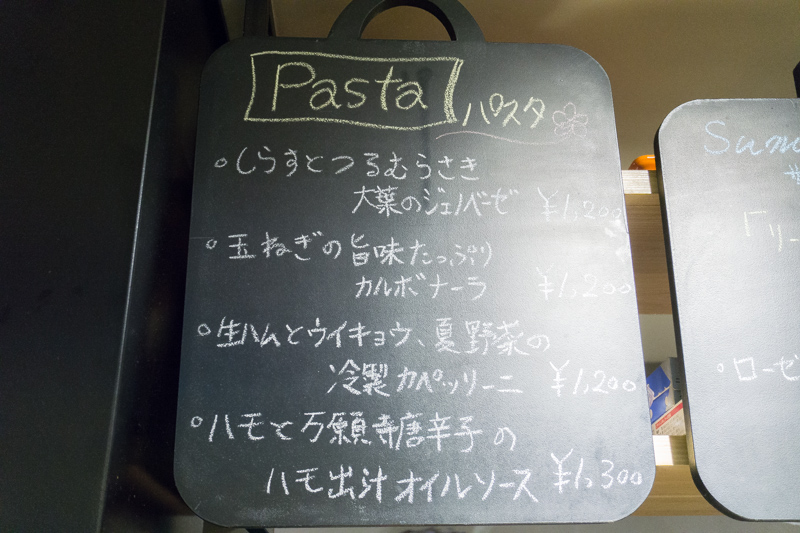 Pasta パスタ
○しらすとつるむらさき
大葉のジェノベーゼ ¥1,200
○玉ねぎの旨味たっぷり
カルボナーラ ¥1,200
○生ハムとウイキョウ、夏野菜の
冷製カペッリーニ ¥1,200
○ハモと万願寺唐辛子の
ハモ出汁オイルソース ¥1,300
「リー
○ローゼ